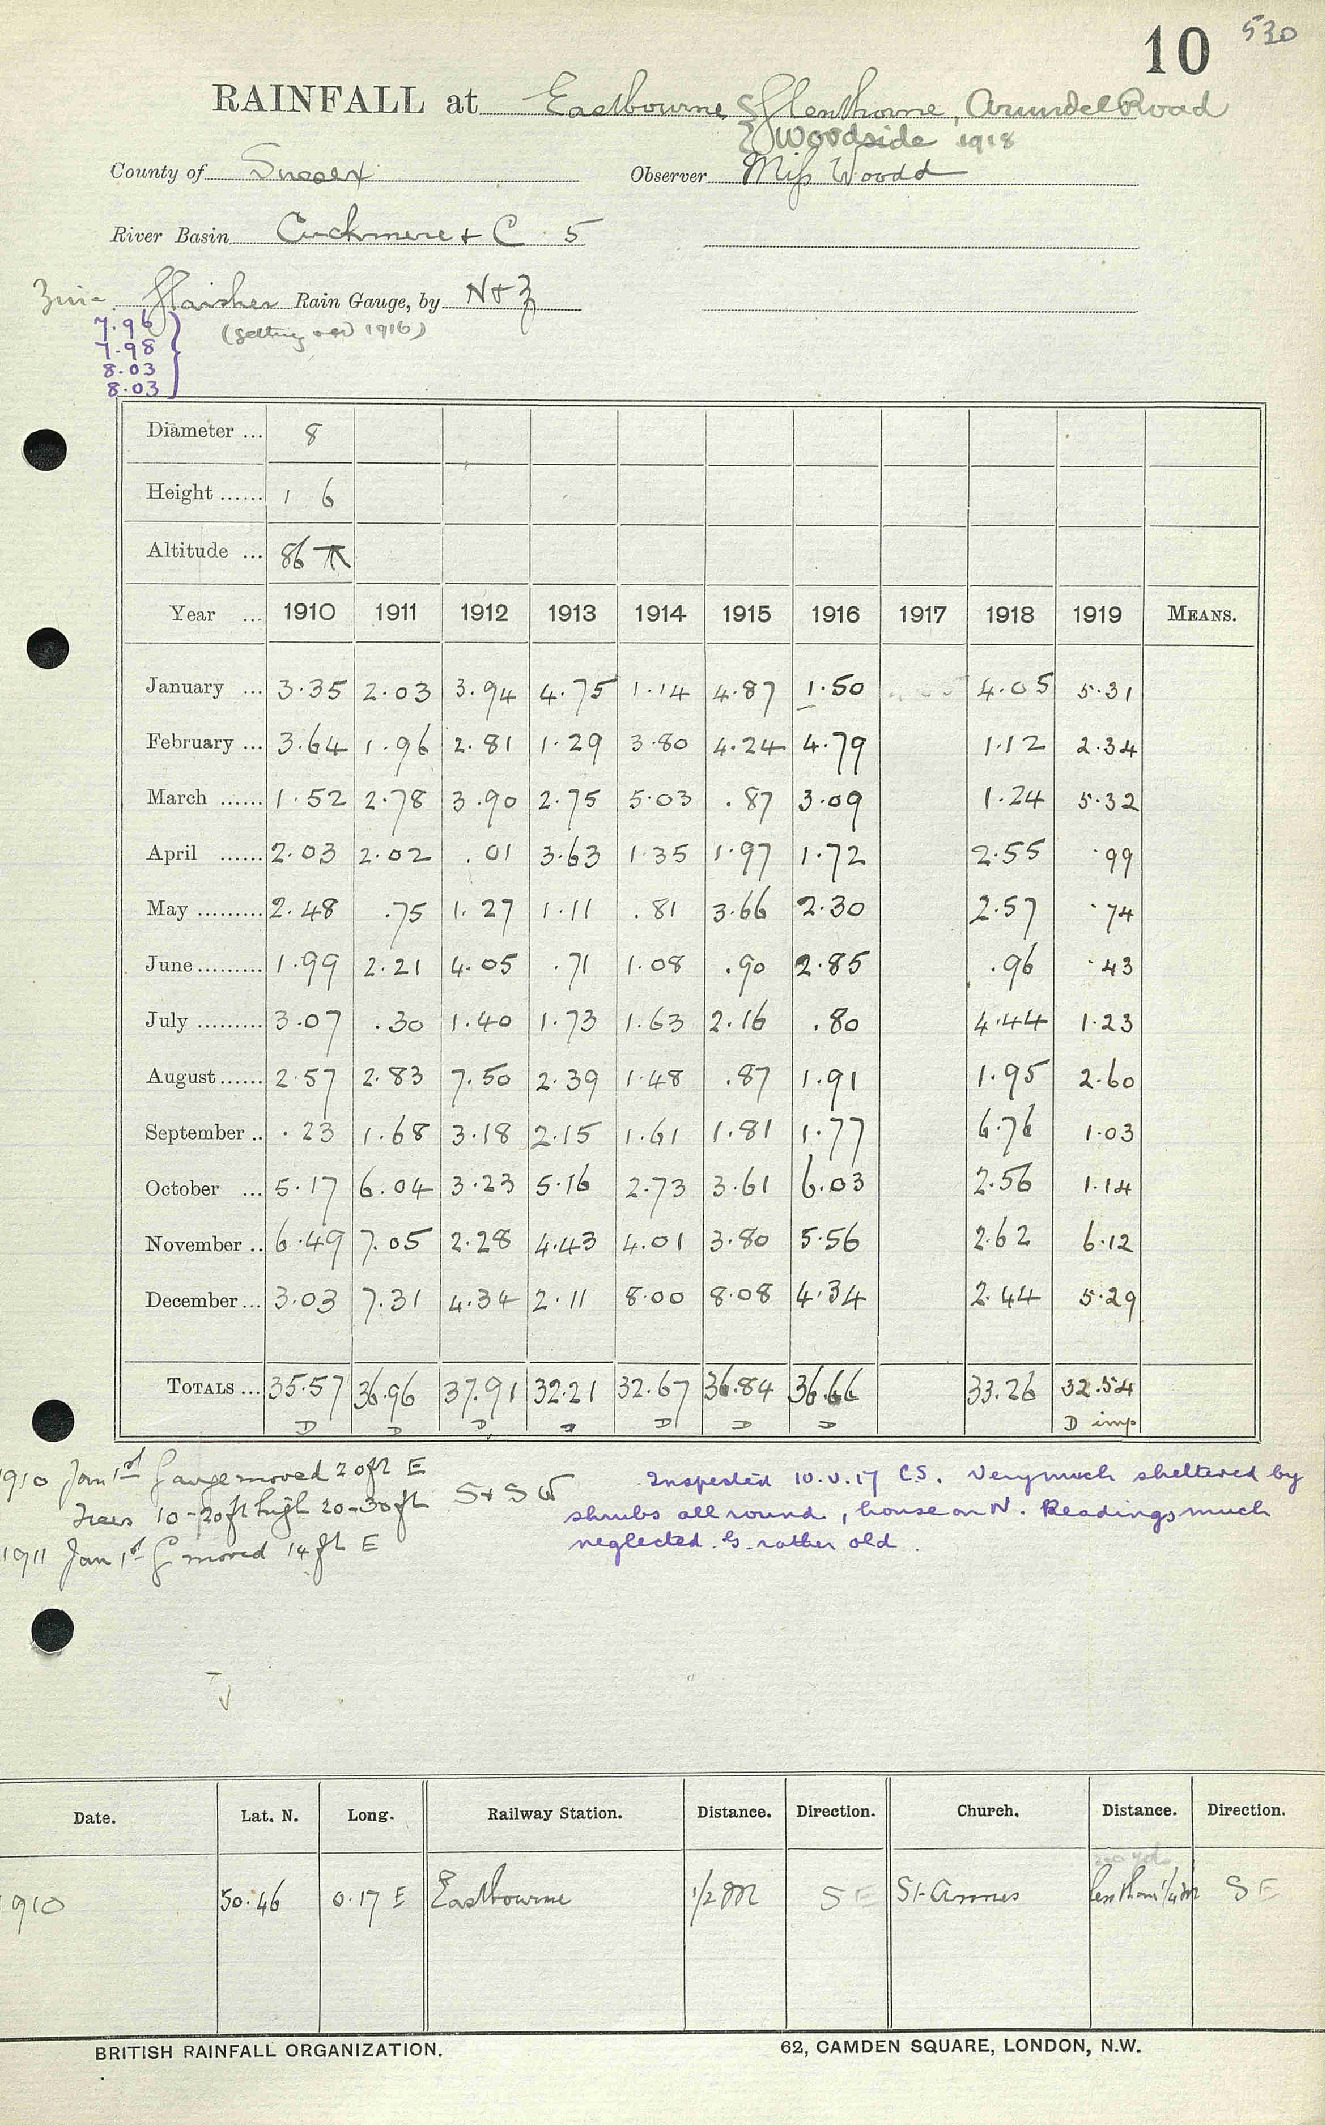 10 530
RAINFALL at Eastbourne { Glenthorne, Arundel Road
{ Woodside 1918
County of Sussex Observer Miss Woodd
River Basin Cuckmere + C 5
Glaisher Rain Gauge, by N & Z
7.96 } (getting old 1916)
7.98
8.03
8.03
Diameter ... 8
Height ...... 1 6
Altitude ... 86
Year ... 1910 1911 1912 1913 1914 1915 1916 1917 1918 1919 MEANS.
January ... 3.35 2.03 3.94 4.75 1.14 4.87 1.50 4.05 5.31
February ... 3.64 1.96 2.81 1.29 3.80 4.24 4.79 1.12 2.34
March ...... 1.52 2.78 3.90 2.75 5.03 .87 3.09 1.24 5.32
April ...... 2.03 2.02 .01 3.63 1.35 1.97 1.72 2.55 .99
May ......... 2.48 .75 1.27 1.11 .81 3.66 2.30 2.57 .74
June ......... 1.99 2.21 4.05 .71 1.08 .90 2.85 .96 .43
July ......... 3.07 .30 1.40 1.73 1.63 2.16 .80 4.44 1.23
August ...... 2.57 2.83 7.50 2.39 1.48 .87 1.91 1.95 2.60
September .. .23 1.68 3.18 2.15 1.61 1.81 1.77 6.76 1.03
October ... 5.17 6.04 3.23 5.16 2.73 3.61 6.03 2.56 1.14
November .. 6.49 7.05 2.28 4.43 4.01 3.80 5.56 2.62 6.12
December ... 3.03 7.31 4.34 2.11 8.00 8.08 4.34 2.44 5.29
TOTALS ... 35.57 36.96 37.91 32.21 32.67 36.84 36.66 33.26 32.54
D D D D D D D D imp
1910 Jan 1st Gauge moved 20ft E
Trees 10-20ft high 20-30ft S + SW
1911 Jan 1st G moved 14 ft E
Inspected 10.V.17 CS. Very much sheltered by
shrubs all round, house on N. Readings much
neglected. G. rather old.
Date. Lat. N. Long. Railway Station. Distance. Direction. Church. Distance. Direction.
1910 50.46 0.17 E Eastbourne 1/2 M SE St. Annes 1/4 M SE
BRITISH RAINFALL ORGANIZATION. 62, CAMDEN SQUARE, LONDON, N.W.